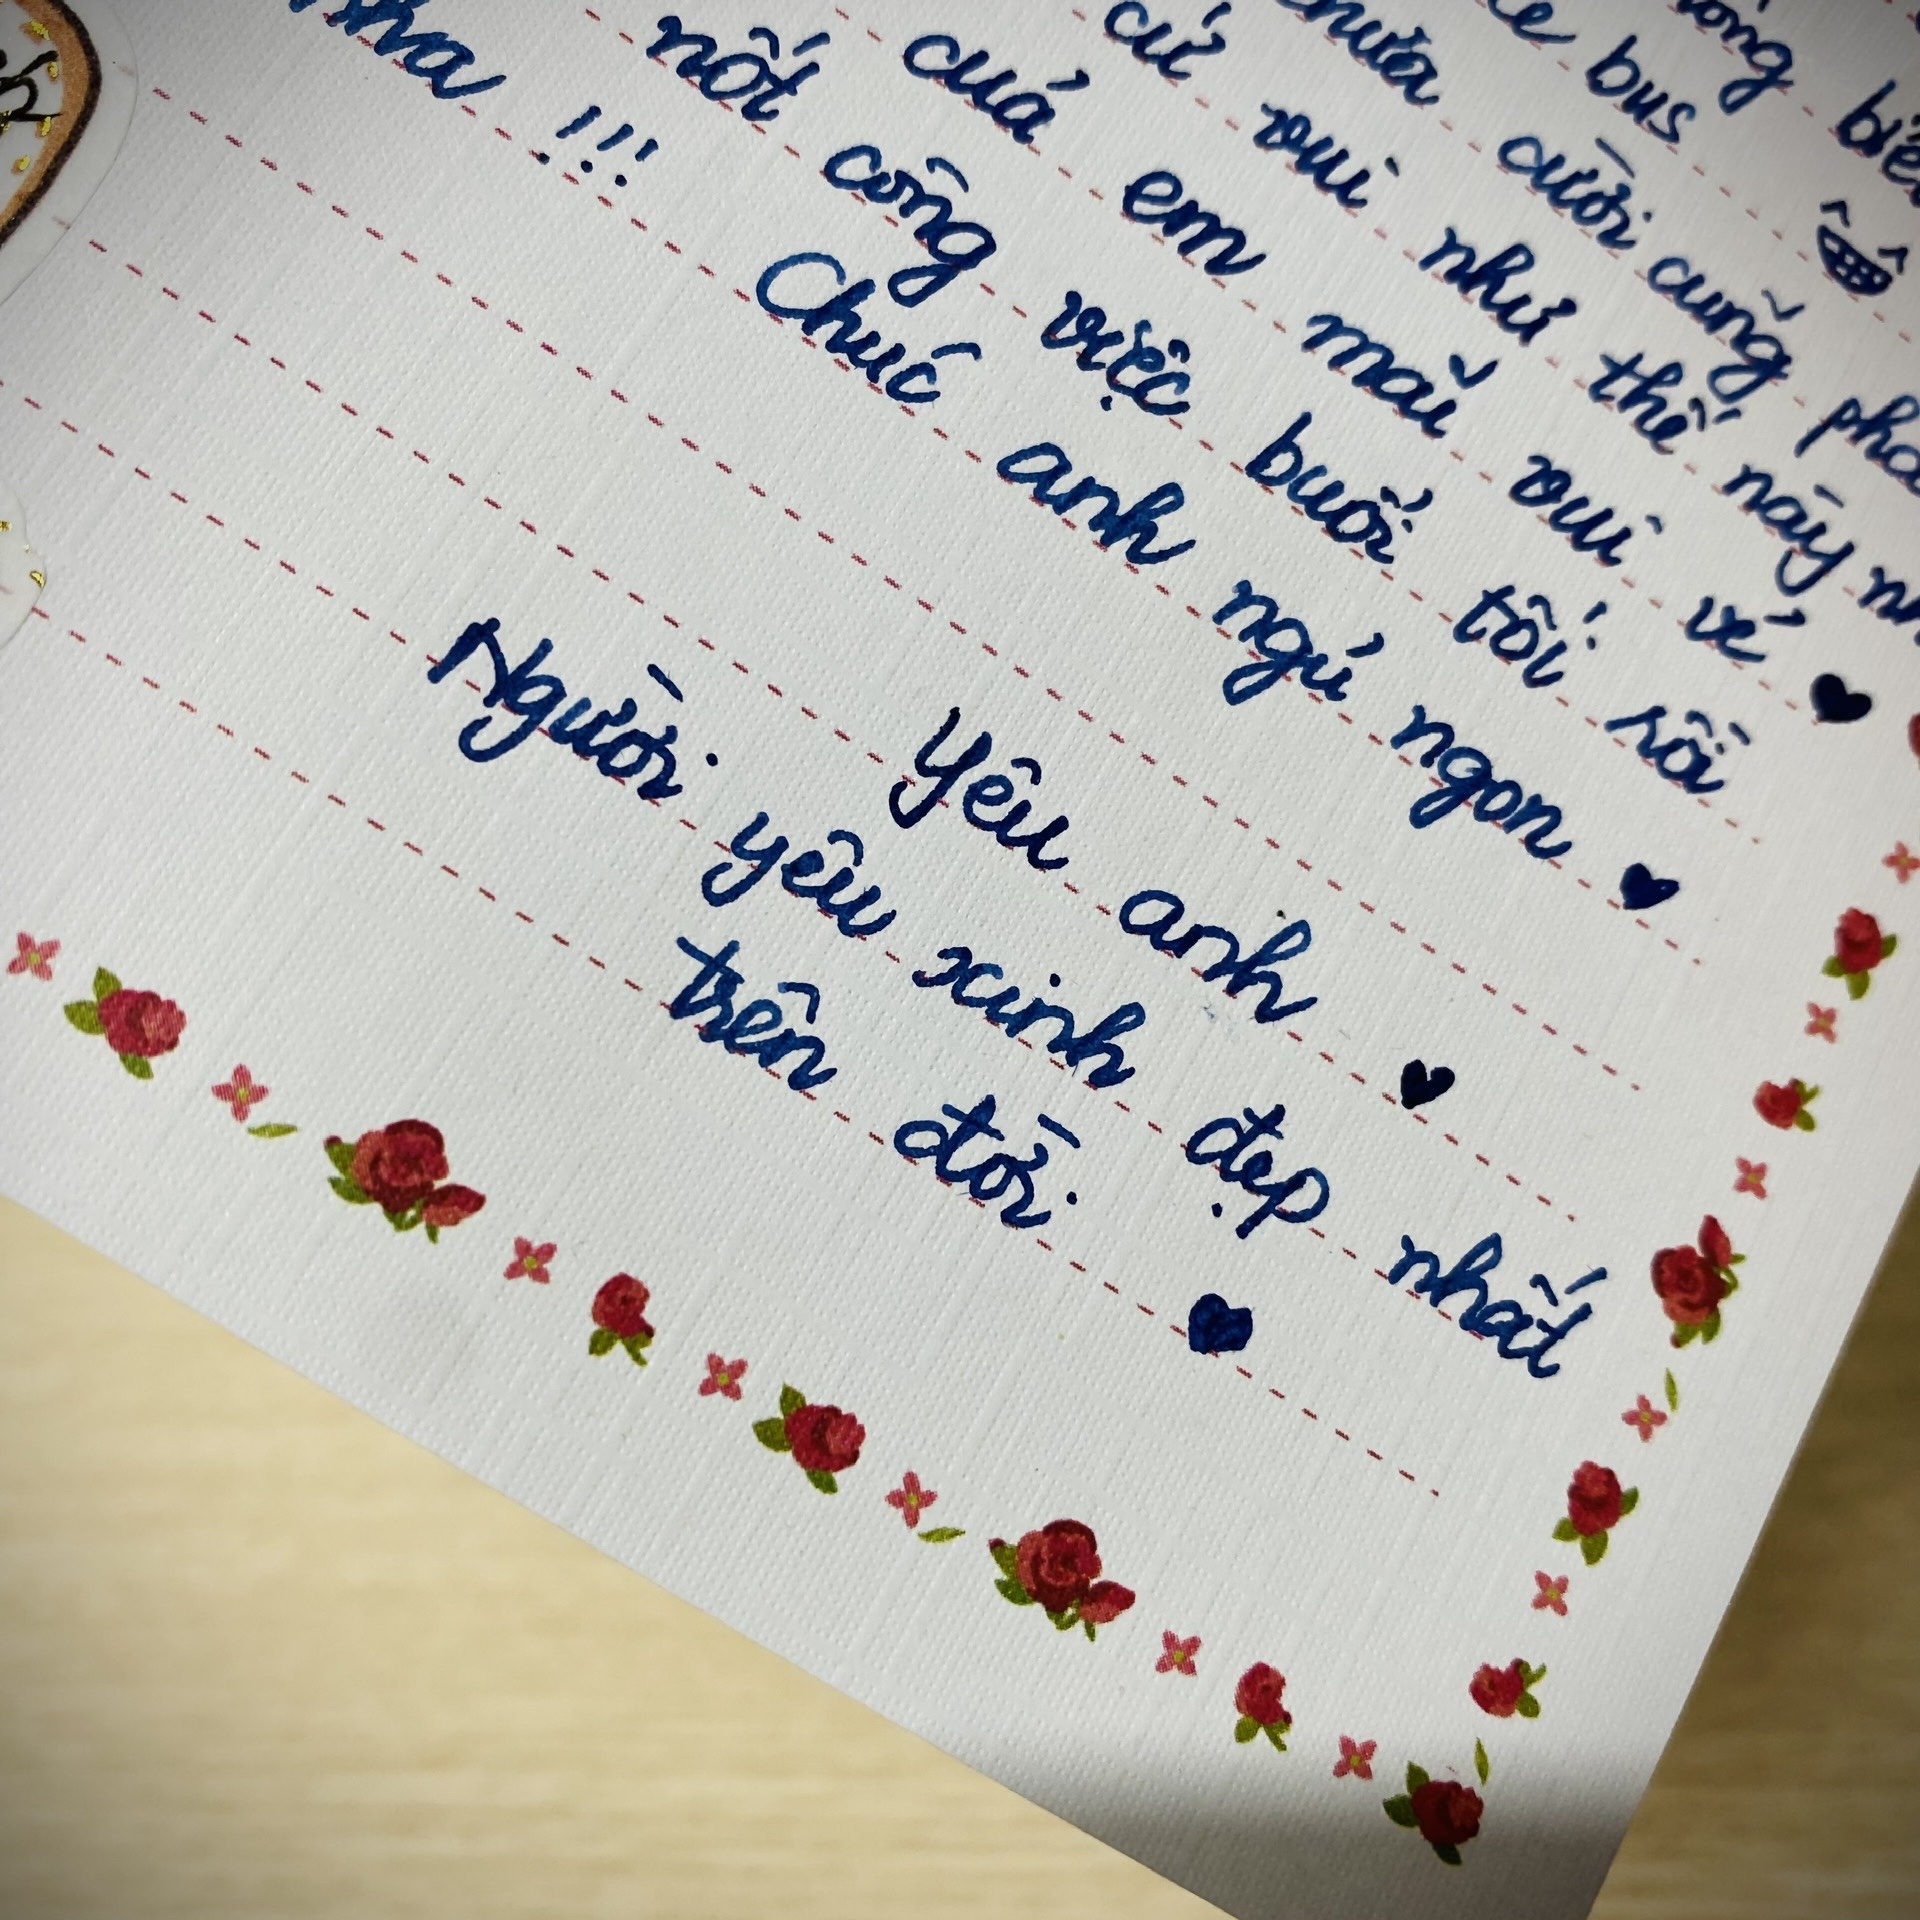 bus
cười cũng
cứ vui như thế này
của em mãi vui vẻ ♥
nốt công việc buổi tối rồi
nha !!! Chúc anh ngủ ngon ♥
Yêu anh ♥
Người yêu xinh đẹp nhất
trên đời ♥